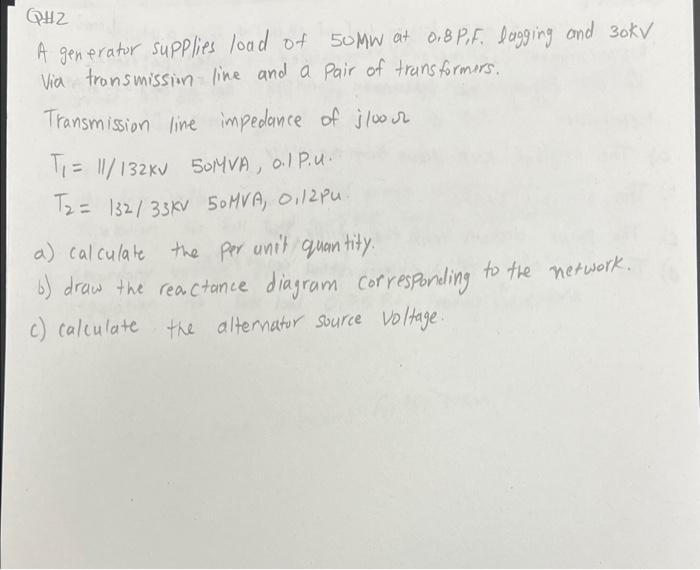 QH2
A generator supplies load of 50MW at 0.8 P.F. lagging and 30kV
Via transmission line and a pair of transformers.
Transmission line impedance of j100 Ω
T1 = 11/132kV 50MVA, 0.1 P.u.
T2 = 132/33kV 50MVA, 0,12pu.
a) calculate the per unit quantity.
b) draw the reactance diagram corresponding to the network.
c) calculate the alternator source voltage.